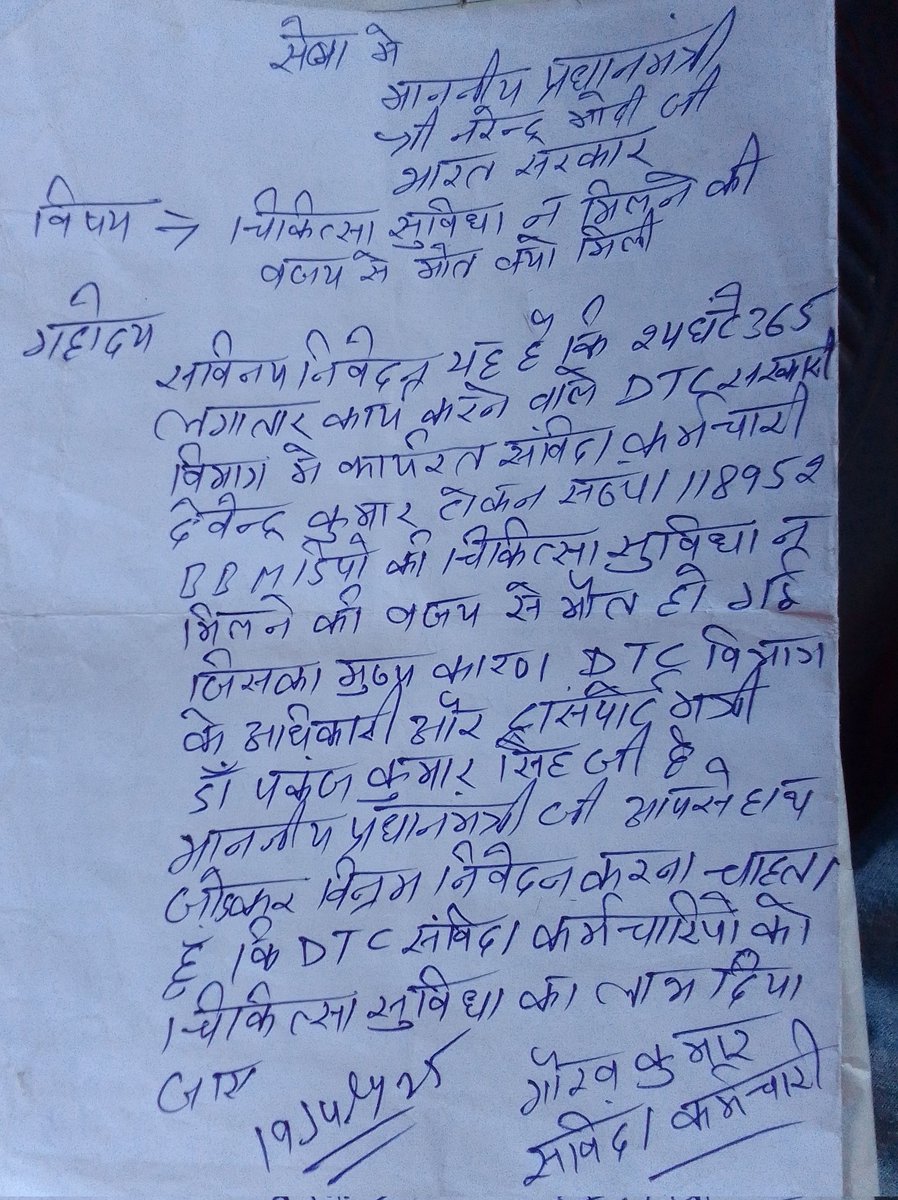 सेवा मे
माननीय प्रधानमंत्री
श्री नरेन्द्र मोदी जी
भारत सरकार
विषय => चिकित्सा सुविधा न मिलने की
वजय से मौत क्यो मिली
महोदय
सविनय निवेदन यह है कि 24घंटे365
लगातार कार्य करने वाले DTC सरकारी
विभाग मे कार्यरत संविदा कर्मचारी
देवेन्द्र कुमार टोकन संख्या 118952
BBM डिपो की चिकित्सा सुविधा न
मिलने की वजय से मौत हो गई
जिसका मुख्य कारण DTC विभाग
के अधिकारी और ट्रांसपोर्ट मंत्री
डॉ पकंज कुमार सिंह जी है
माननीय प्रधानमंत्री जी आपसे हाथ
जोडकर विन्रम निवेदन करना चाहता
हूं कि DTC संविदा कर्मचारियो को
चिकित्सा सुविधा का लाभ दिया
जाए
गौरव कुमार
संविदा कर्मचारी